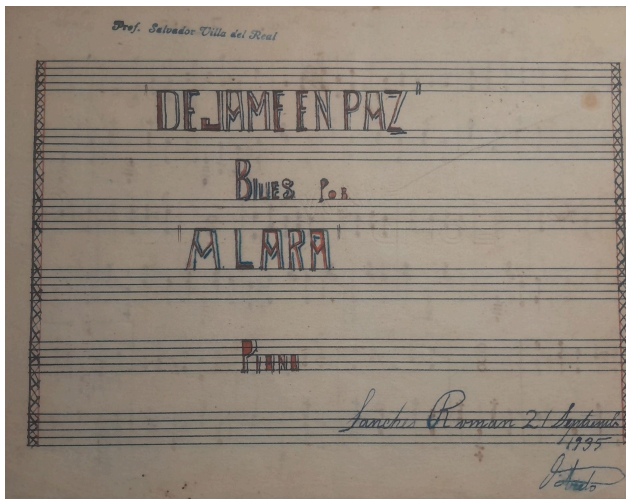 Prof. Salvador Villa del Real
"DEJAME EN PAZ"
BLUES POR
"A LARA"
PIANO
Sanches Roman 21 Septiembre
1935